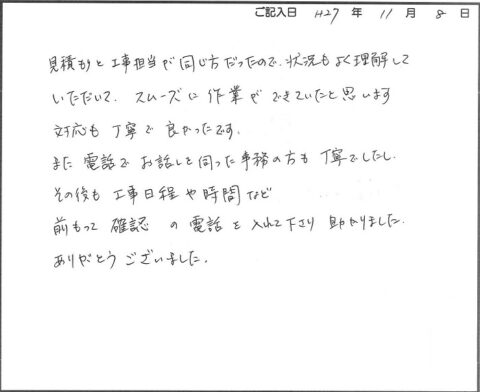 ご記入日 H27 年 11 月 8 日
見積もりと工事担当が同じ方だったので、状況もよく理解して
いただいて、スムーズに作業ができていたと思います
対応も丁寧で良かったです。
また電話でお話しを伺った事務の方も丁寧でしたし、
その後も工事日程や時間など
前もって確認の電話を入れて下さり助かりました。
ありがとうございました。